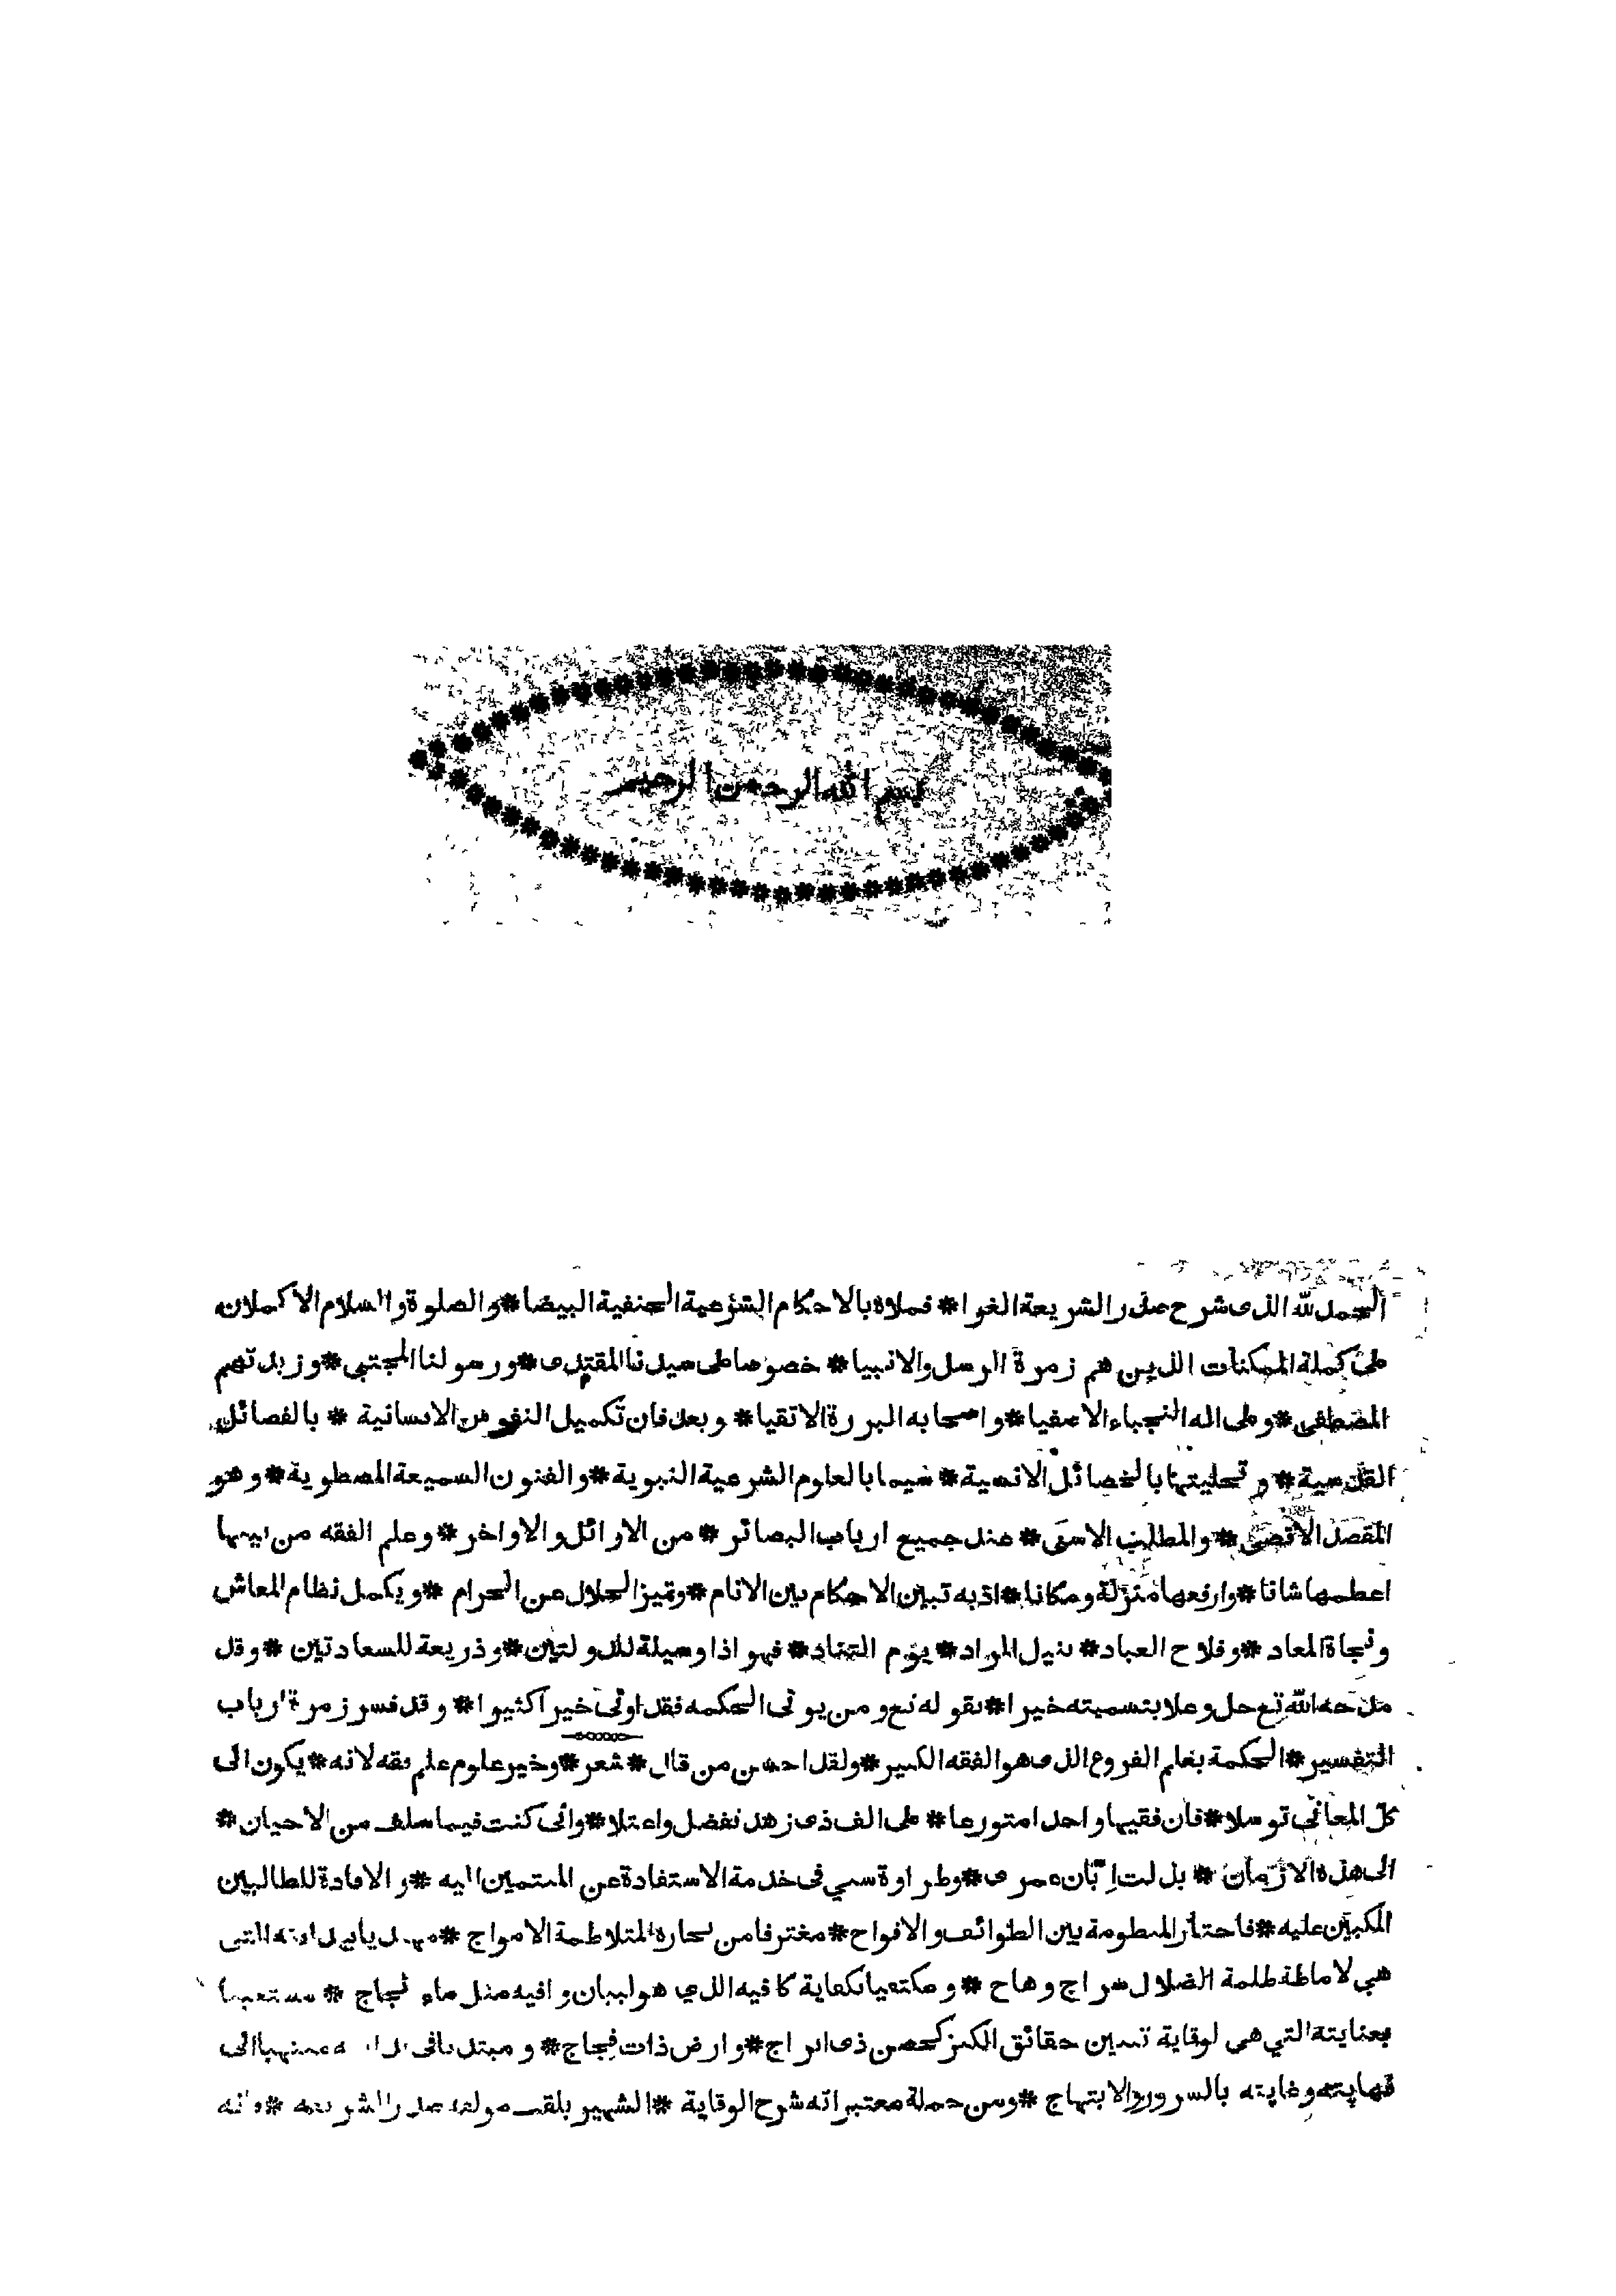 بسم الله الرحمن الرحيم
الحمد لله الذى شرح صدر الشريعة الغرا * فملاه بالاحكام الشرعية الحنفية البيضا * والصلوة والسلام الاكملان
على كملة الممكنات الذين هم زمرة الرسل والانبيا * خصوصا على سيدنا المقتدى * ورسولنا المجتبى * وزبدتهم
المصطفى * وعلى اله النجباء الاصفيا * واصحابه البررة الاتقيا * وبعد فان تكميل النفوس الانسانية * بالفضائل
القدسية * وتحليتها بالخصائل الانسية * سيما بالعلوم الشرعية النبوية * والفنون السميعة المصطوية * وهو
المقصد الاقصى * والمطلب الاسنى * عند جميع ارباب البصائر * من الاوائل والاواخر * وعلم الفقه من بينها
اعظمها شانا * وارفعها منزلة ومكانا * اذ به تبين الاحكام بين الانام * وتميز الحلال عن الحرام * ويكمل نظام المعاش
ونجاة المعاد * وفلاح العباد * بنيل المراد * يوم التناد * فهو اذا وسيلة للدولتين * وذريعة للسعادتين * وقد
مدحه الله تع جل وعلا بتسميته خيرا * بقوله تع ومن يوتى الحكمه فقد اوتى خيرا كثيرا * وقد فسر زمرة ارباب
التفسير * الحكمة بعلم الفروع الذى هو الفقه الكبير * ولقد احسن من قال * شعر * وخير علوم علم فقه لانه * يكون الى
كل المعانى توسلا * فان فقيها واحدا متورعا * على الف ذى زهد تفضل واعتلا * وانى كنت فيما سلف من الاحيان *
الى هذه الازمان * بدلت ابان عمرى * وطراوة سنى فى خدمة الاستفادة عن المنتمين اليه * والافادة للطالبين
المكبين عليه * فاحتار المنظومة بين الطوائف والافواج * مغترفا من بحاره المتلاطمة الامواج * التى
هي لاماطة ظلمة الضلال سراج وهاج * ومكتفيا بكفاية كافيه الذي هو لبيان وافيه مثل ماء ثجاج *
بعنايته التي هى لوقاية تبيين حقائق الكنز كحصن ذى ابراج * وارض ذات فجاج * و
نهايته وغايته بالسرور والابتهاج * ومن جملة معتبراته شرح الوقاية * الشهير بلقب مولفه صدر الشريعه * وانه